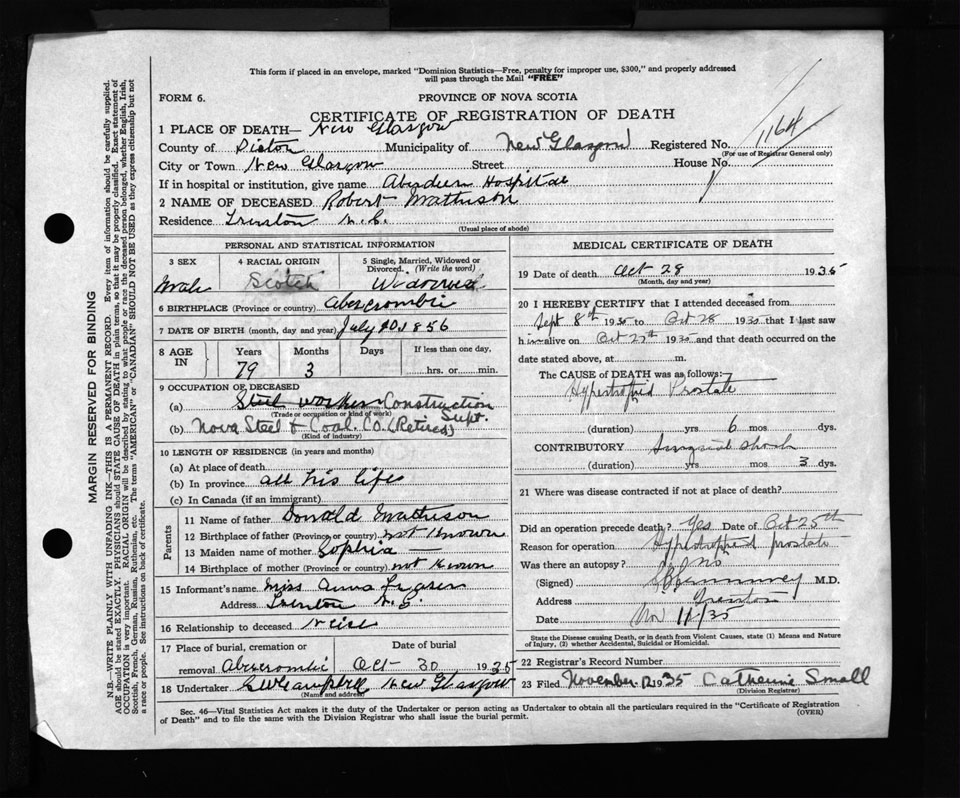 This form if placed in an envelope, marked "Dominion Statistics—Free, penalty for improper use, $300," and properly addressed
will pass through the Mail "FREE"
FORM 6.
PROVINCE OF NOVA SCOTIA
CERTIFICATE OF REGISTRATION OF DEATH
1164
1 PLACE OF DEATH— New Glasgow
County of Pictou Municipality of New Glasgow Registered No.
(For use of Registrar General only)
City or Town New Glasgow Street House No.
If in hospital or institution, give name Aberdeen Hospital
2 NAME OF DECEASED Robert Mathison
Residence Trenton N.S.
(Usual place of abode)
PERSONAL AND STATISTICAL INFORMATION
3 SEX 4 RACIAL ORIGIN 5 Single, Married, Widowed or
Divorced. (Write the word)
Male Scotch Widowed
6 BIRTHPLACE (Province or country) Abercrombie
7 DATE OF BIRTH (month, day and year) July 20 1856
8 AGE IN Years Months Days If less than one day,
79 3 hrs. or min.
9 OCCUPATION OF DECEASED
(a) Steel worker Construction Supt.
(Trade or occupation or kind of work)
(b) Nova Steel & Coal. CO. (Retired)
(Kind of industry)
10 LENGTH OF RESIDENCE (in years and months)
(a) At place of death
(b) In province all his life
(c) In Canada (if an immigrant)
Parents
11 Name of father Donald Mathison
12 Birthplace of father (Province or country) not known
13 Maiden name of mother Sophia —
14 Birthplace of mother (Province or country) not known
15 Informant's name Miss Anna Fraser
Address Trenton N.S.
16 Relationship to deceased Neice
17 Place of burial, cremation or Date of burial
removal Abercrombie Oct 30 1935
18 Undertaker Campbell New Glasgow
(Name and address)
MEDICAL CERTIFICATE OF DEATH
19 Date of death Oct 28 1935
(Month, day and year)
20 I HEREBY CERTIFY that I attended deceased from
Sept 8th 1935 to Oct 28 1935 that I last saw
him alive on Oct 27th 1935 and that death occurred on the
date stated above, at m.
The CAUSE of DEATH was as follows:
Hypertrophied Prostate
(duration) yrs 6 mos. dys.
CONTRIBUTORY Surgical shock
(duration) yrs mos 3 dys.
21 Where was disease contracted if not at place of death?
Did an operation precede death? Yes Date of Oct 25th
Reason for operation Hypertrophied prostate
Was there an autopsy? No
(Signed) M.D.
Address Trenton
Date Nov 11/35
State the Disease causing Death, or in death from Violent Causes, state (1) Means and Nature
of Injury, (2) whether Accidental, Suicidal or Homicidal.
22 Registrar's Record Number
23 Filed November 12 1935 Catherine Small
(Division Registrar)
Sec. 46—Vital Statistics Act makes it the duty of the Undertaker or person acting as Undertaker to obtain all the particulars required in the "Certificate of Registration
of Death" and to file the same with the Division Registrar who shall issue the burial permit.
(OVER)
MARGIN RESERVED FOR BINDING
N.B.—WRITE PLAINLY WITH UNFADING INK—THIS IS A PERMANENT RECORD. Every item of information should be carefully supplied.
AGE should be stated EXACTLY. PHYSICIANS should STATE CAUSE OF DEATH in plain terms, so that it may be properly classified. Exact statement of
OCCUPATION is very important. RACIAL ORIGIN will be described by stating to what people or race the deceased person belonged, whether English, Irish,
Scottish, French, German, Russian, Ruthenian, etc. The terms "AMERICAN" or "CANADIAN" SHOULD NOT BE USED as they express citizenship but not
a race or people. See instructions on back of certificate.